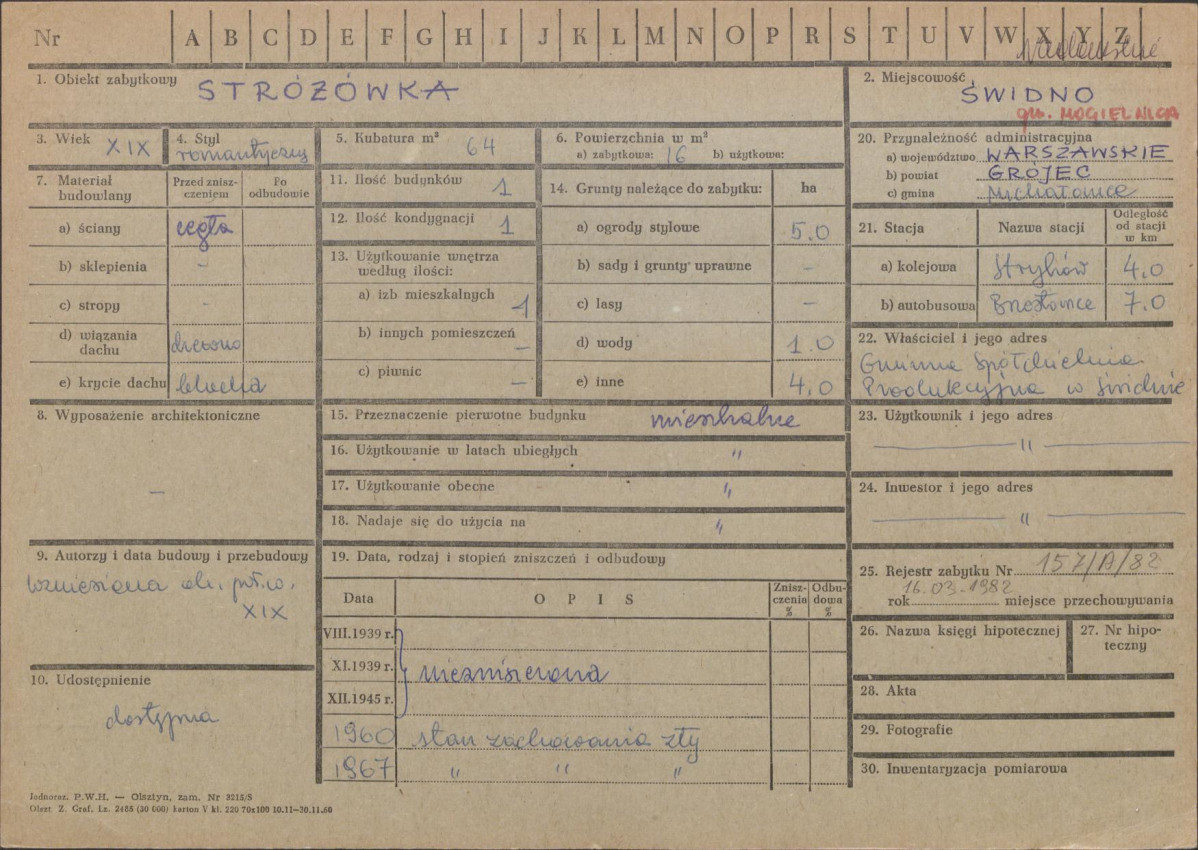 Nr A B C D E F G H I J K L M N O P R S T U V W X Y Z
1. Obiekt zabytkowy STRÓŻÓWKA
2. Miejscowość ŚWIDNO
gm. MOGIELNICA
3. Wiek XIX
4. Styl romantyczny
5. Kubatura m³ 64
6. Powierzchnia w m²
a) zabytkowa: 16 b) użytkowa:
20. Przynależność administracyjna
a) województwo WARSZAWSKIE
b) powiat GRÓJEC
c) gmina Michałowice
7. Materiał budowlany
Przed zniszczeniem
Po odbudowie
a) ściany cegła
b) sklepienia -
c) stropy -
d) wiązania dachu drewno
e) krycie dachu blacha
11. Ilość budynków 1
12. Ilość kondygnacji 1
13. Użytkowanie wnętrza według ilości:
a) izb mieszkalnych 1
b) innych pomieszczeń -
c) piwnic -
14. Grunty należące do zabytku: ha
a) ogrody stylowe 5.0
b) sady i grunty uprawne -
c) lasy -
d) wody 1.0
e) inne 4,0
21. Stacja Nazwa stacji Odległość od stacji w km
a) kolejowa 4.0
b) autobusowa 7.0
22. Właściciel i jego adres
Gminna Spółdzielnia
Produkcyjna w Świdnie
8. Wyposażenie architektoniczne
-
15. Przeznaczenie pierwotne budynku mieszkalne
16. Użytkowanie w latach ubiegłych "
17. Użytkowanie obecne "
18. Nadaje się do użycia na "
23. Użytkownik i jego adres
— " —
24. Inwestor i jego adres
— " —
9. Autorzy i data budowy i przebudowy
wzniesiona ok. poł. w.
XIX
10. Udostępnienie
dostępna
19. Data, rodzaj i stopień zniszczeń i odbudowy
Data OPIS Zniszczenia % Odbudowa %
VIII.1939 r.
XI.1939 r. niezniszczona
XII.1945 r.
1960 stan zachowania zły
1967 " " "
25. Rejestr zabytku Nr 157/A/82
rok 16.03.1982 miejsce przechowywania
26. Nazwa księgi hipotecznej
27. Nr hipoteczny
28. Akta
29. Fotografie
30. Inwentaryzacja pomiarowa
Jednoraz. P.W.H. — Olsztyn, zam. Nr 3215/S
Olszt. Z. Graf. Lz. 2485 (30 000) karton V kl. 220 70x100 10.11—30.11.60